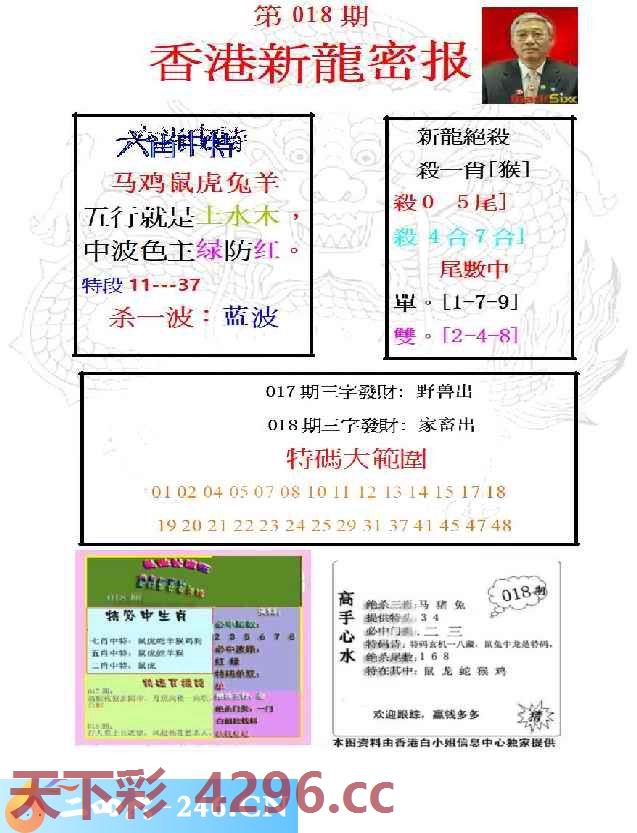 第 018 期
香港新龍密报
六肖中特
马鸡鼠虎兔羊
五行就是土水木，
中波色主绿防红。
特段 11---37
杀一波：蓝波
新龍絕殺
殺一肖[猴]
殺0 5尾]
殺 4合7合]
尾數中
單。[1-7-9]
雙。[2-4-8]
017期三字發財：野兽出
018期三字發財：家畜出
特碼大範圍
01 02 04 05 07 08 10 11 12 13 14 15 17 18
19 20 21 22 23 24 25 29 31 37 41 45 47 48
018期
特劳中生肖
七肖中特：鼠虎蛇羊猴鸡狗
五肖中特：鼠虎蛇羊猴
二肖中特：鼠虎
2 3 5 6 7 8
红 绿
绝杀门数：一门
高手心水
018期
绝杀三肖：马 猪 兔
提供特头 3 4
必中门数：二 三
特码诗：特码玄机一八藏，鼠兔牛龙是特码，
绝杀尾数：1 6 8
特在其中：鼠 龙 蛇 猴 鸡
欢迎跟踪，赢钱多多
猪
本图资料由香港白小姐信息中心独家提供
天下彩 4296.cc
-246.CN